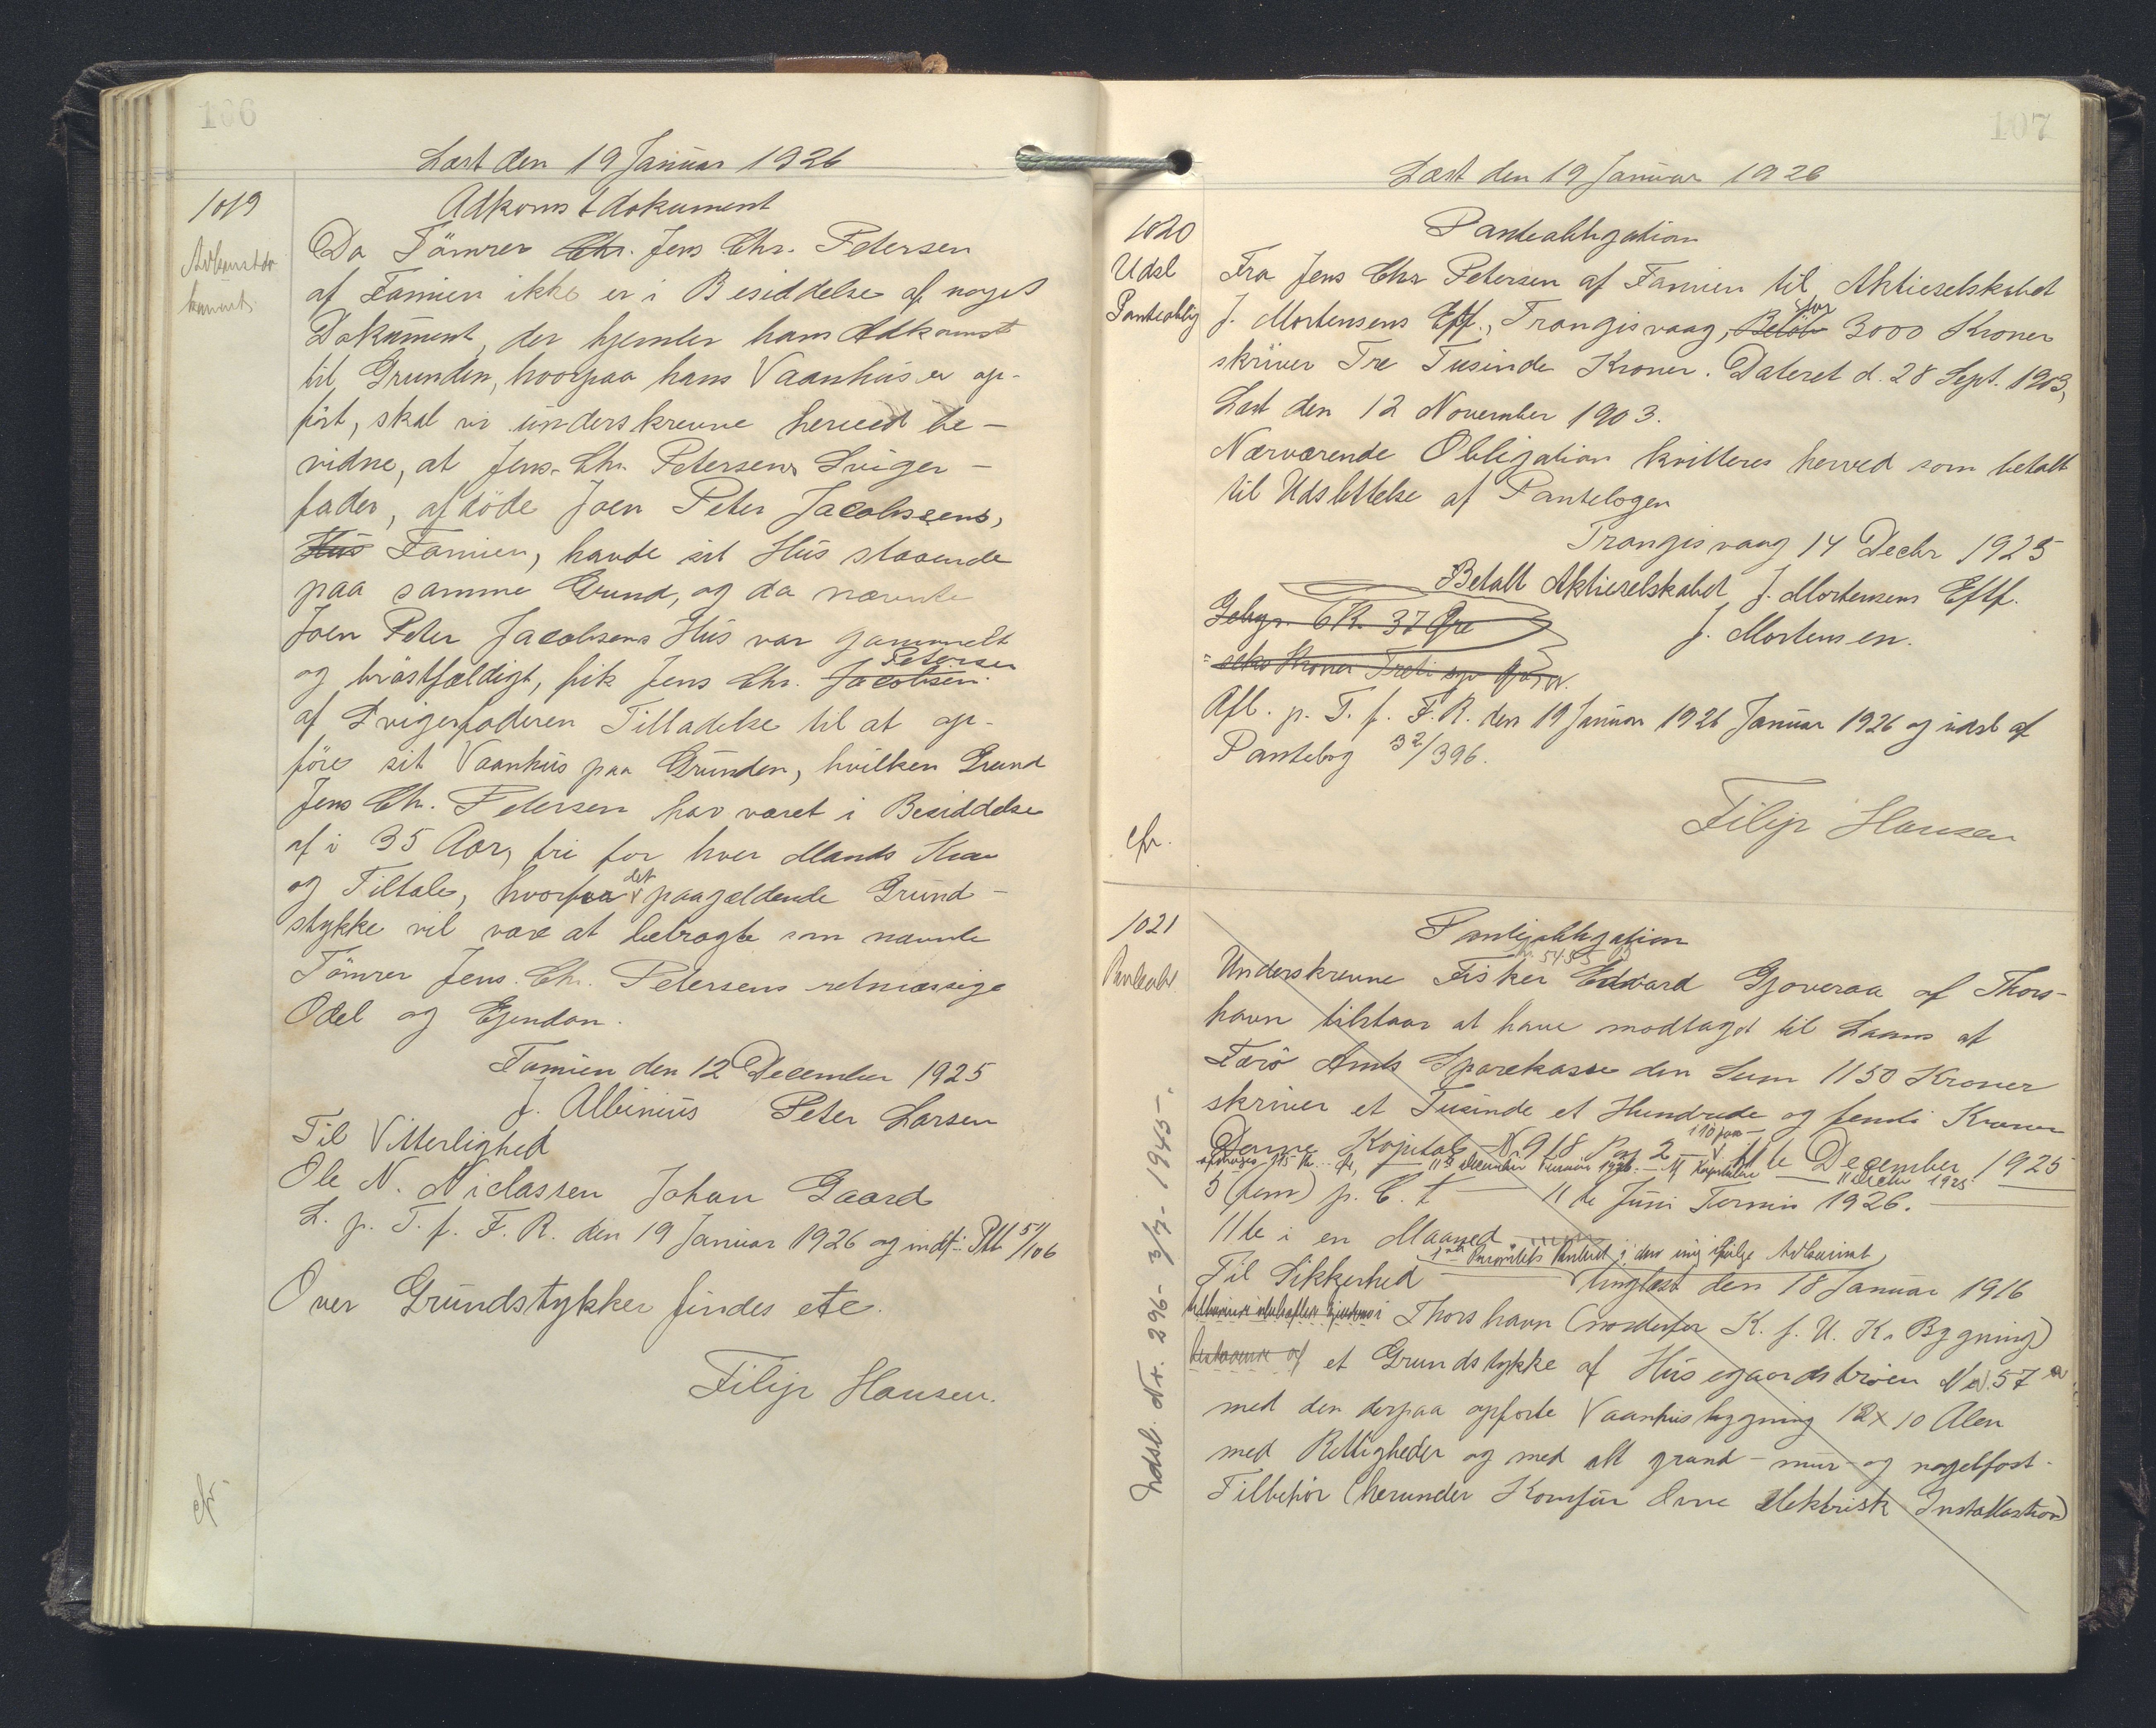 106
Læst den 19 Januar 1926
1019
Adkomstdokument
Adkomstdo
kument
Da Tömrer Chr. Jens Chr. Petersen
af Famien ikke er i Besiddelse af noget
Dokument, der hjemler ham Adkomst
til Grunden, hvorpaa hans Vaanhus er op-
fört, skal vi underskrevne herved be-
vidne, at Jens Chr. Petersens Sviger-
fader, afdöde Joen Peter Jacobsens,
Hus Famien, havde sit Hus staaende
paa samme Grund, og da nævnte
Joen Peter Jacobsens Hus var gammelt
og bröstfældigt, fik Jens Chr. Jacobsen Petersen
af Svigerfaderen Tilladelse til at op-
före sit Vaanhus paa Grunden, hvilken Grund
Jens Chr. Petersen har været i Besiddelse
af i 35 Aar, fri for hver Mands Krav
og Tiltale, hvorfor det paagældende Grund-
stykke vil være at betragte som nævnte
Tömrer Jens Chr. Petersens retmæssige
Odel og Ejendom.
Famien den 12 December 1925
J. Albinius Peter Larsen
Til Vitterlighed
Ole N. Niclassen Johan Gaard
L. p. T. f. F. R. den 19 Januar 1926 og indf. Ptb 54/106
Over Grundstykker findes etc.
Filip Hansen.
cfr
107
Læst den 19 Januar 1926
1020
Panteobligation
Udsl
Panteoblig
Fra Jens Chr Petersen af Famien til Aktieselskabet
J. Mortensens Eftf., Trangisvaag, Beløb for 3000 Kroner
skriver Tre Tusinde Kroner. Dateret d. 28 Sept. 1903,
Læst den 12 November 1903.
Nærværende Obligation kvitteres herved som betalt
til Udslettelse af Pantebogen
Trangisvaag 14 Decbr 1925
Betalt Aktieselskabet J. Mortensens Eftf.
J. Mortensen.
Gebyr 6 Kr. 37 Øre
= seks Kroner Treti syv Øre
Afl. p. T. f. F. R. den 19 Januar 1926 Januar 1926 og udsl af
Pantebog 32/396.
Filip Hansen
cfr.
1021
Pantobligation
Panteobl.
Underskrevne Fisker Edvard Gjoveraa af Thors-
havn tilstaar at have modtaget til Laans af
Færö Amts Sparekasse den Sum 1150 Kroner
skriver et Tusinde et Hundrede og femti Kroner
Denne Kapital N 918 Pag 2 11te December 1925
5 (fem) p. C. t 11te Juni Termin 1926.
11te i en Maaned
1ste Prioritets Panteret i den mig ifølge Adkomst
Til Sikkerhed tinglæst den 18 Januar 1916
Thorshavn (nordenfor K. f. U. K. Bygning)
bestaaende af et Grundstykke af Husegaardstrøen No 57 a
med den derpaa opförte Vaanhusbygning 12 x 10 Alen
med Rettigheder og med alt grund- mur- og nagelfast-
Tilbehör (herunder Komfur Ovne elektrisk Installastion)
Udsl. Nr. 296- 3/7- 1945-.